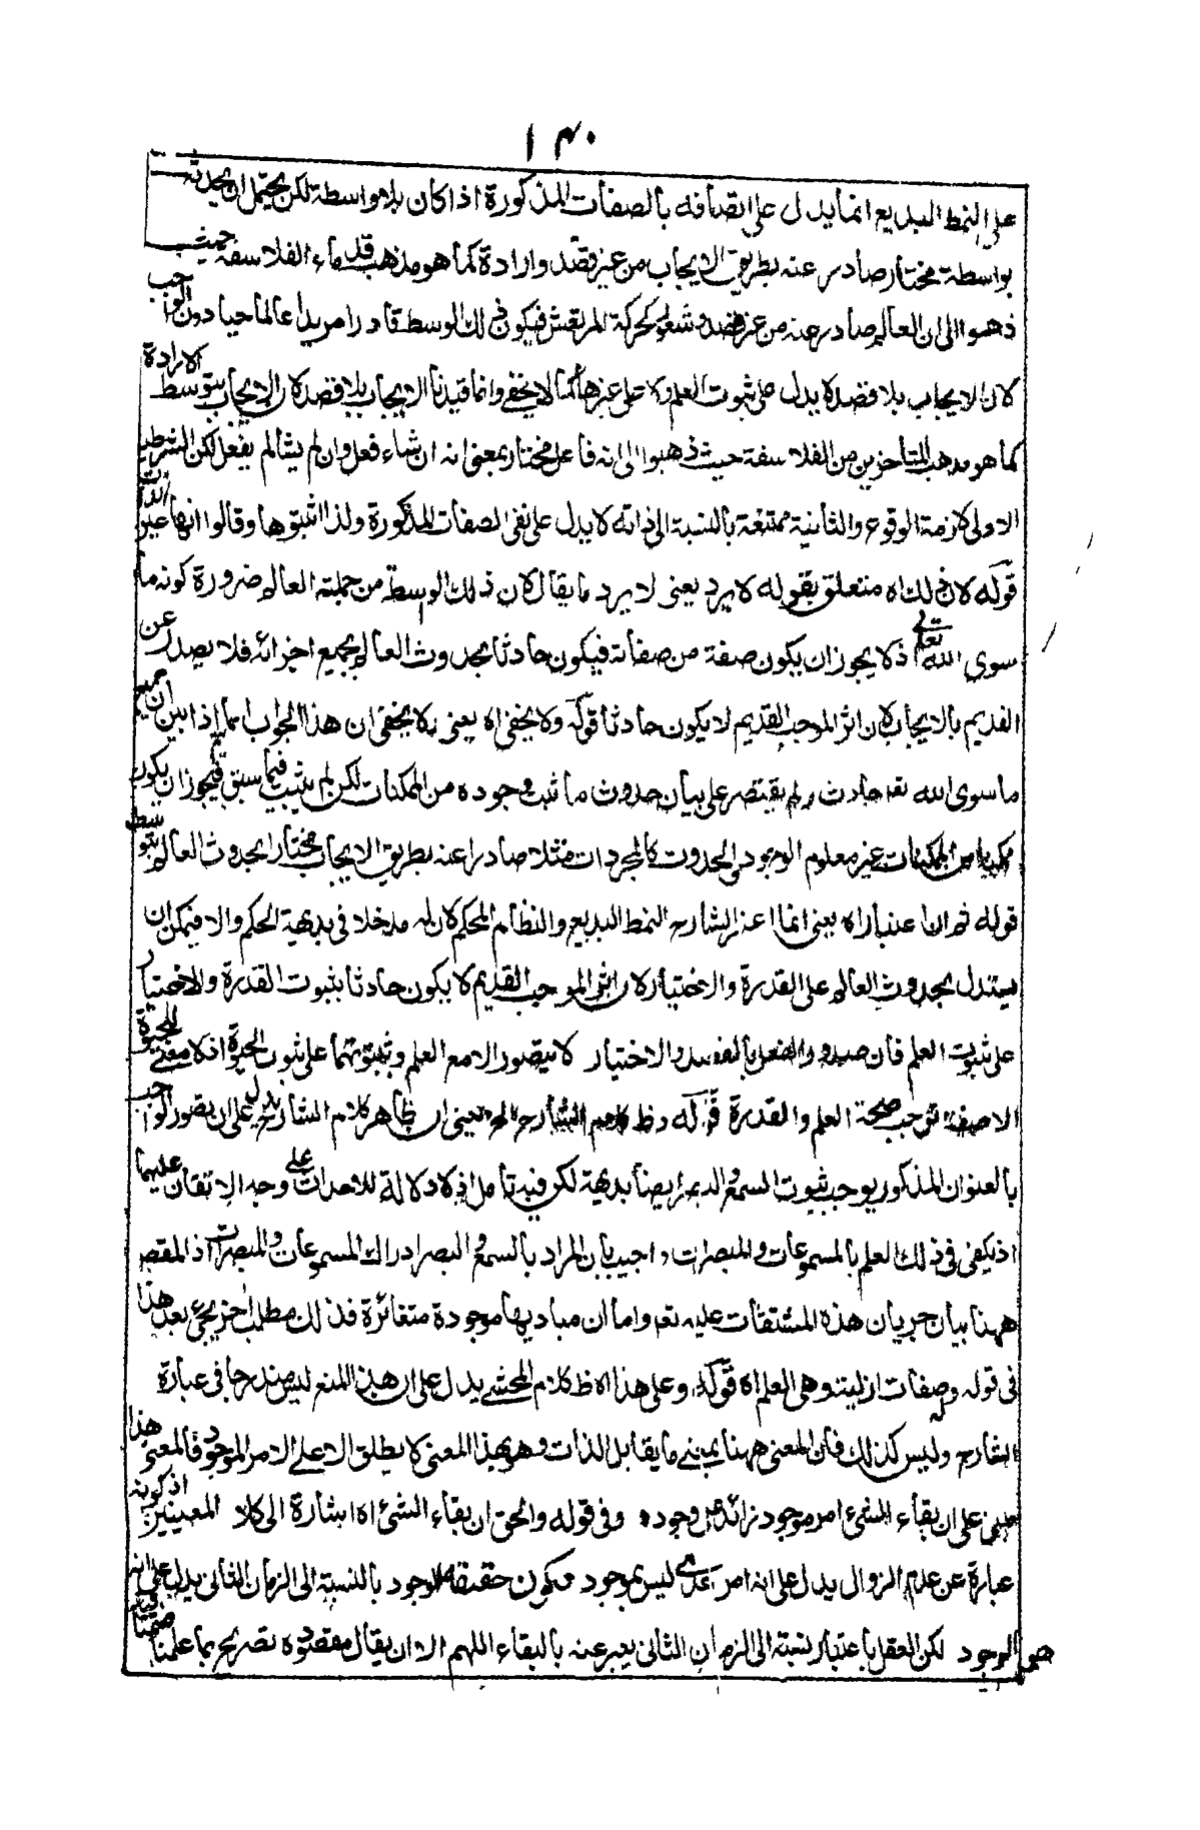 ١٣٠
على النمط البديع انما يدل على اتصافه بالصفات المذكورة اذا كان بلا واسطة لكن يحتمل ان يحدثه
بواسطة مختار صادر عنه بطريق الايجاب من غير قصد وارادة كما هو مذهب قدماء الفلاسفة حيث
ذهبوا الى ان العالم صادر عنه من غير قصد وشعور كحركة المرتعش فيكون ذلك الوسط قادرا مريدا عالما حيا دون الواجب
لان الايجاب بلا قصد لا يدل على ثبوت العلم ولا على غيرها كما لا يخفى وانما قيدنا الايجاب بلا قصد لان الايجاب بتوسط الارادة
كما هو مذهب المتأخرين من الفلاسفة حيث ذهبوا الى انه فاعل مختار بمعنى انه ان شاء فعل وان لم يشأ لم يفعل لكن الشرطية
الاولى لازمة الوقوع والثانية ممتنعة بالنسبة الى ذاته لا يدل على نفى الصفات المذكورة ولذا اثبتوها وقالوا انها عين الذات
قوله لان ذلك اه متعلق بقوله لا يرد يعنى لا يرد ما يقال لان ذلك الوسط من جملة العالم ضرورة كونه مما
سوى الله تعالى اذ لا يجوز ان يكون صفة من صفاته فيكون حادثا بحدوث العالم بجميع اجزائه فلا يصدر عن
القديم بالايجاب لان اثر الموجب القديم لا يكون حادثا قوله ولا يخفى اه يعنى لا يخفى ان هذا الجواب انما يتم اذا بين ان جميع
ما سوى الله تعه حادث ولم يقتصر على بيان حدوث ما ثبت وجوده من الممكنات لكن لم يثبت فيما سبق فيجوز ان يكون
ممكنا من الممكنات غير معلوم الوجود والحدوث كالمجردات مثلا صادرا عنه بطريق الايجاب مختارا بحدوث العالم بتوسطه
قوله ثم ان اعتبار اه يعنى انما اعتبر الشارح النمط البديع والنظام المحكم لان له مدخلا فى بديهة الحكم والا فيمكن ان
يستدل بحدوث العالم على القدرة والاختيار لان اثر الموجب القديم لا يكون حادثا بثبوت القدرة والاختيار
على ثبوت العلم فان صدور الفعل بالقصد والاختيار لا يتصور الا مع العلم وثبوتهما على ثبوت الحيوة اذ لا معنى للحيوة
الا صفة توجب صحة العلم والقدرة قوله وظ كلام الشارح اه يعنى ان ظاهر كلام الشارح يدل على ان تصور الواجب
بالعنوان المذكور يوجب ثبوت السمع والبصر ايضا بديهة لكن فيه تأمل اذ لا دلالة للاحداث على وجه الاتقان عليهما
اذ يكفى فى ذلك العلم بالمسموعات والمبصرات واجيب بان المراد بالسمع والبصر ادراك المسموعات والمبصرات اذ المقصود
ههنا بيان جريان هذه المشتقات عليه تعه واما ان مباديها موجودة متغائرة فذلك مطلب اخر يجئ بعد هذا
فى قوله وله صفات ازلية وهى العلم اه قوله وعلى هذا اه ظ كلام المحشى يدل على ان هذا المنع ليس مندرجا فى عبارة
الشارح وليس كذلك فان المعنى ههنا بمعنى ما يقابل الذات وهو بهذا المعنى لا يطلق الا على الامر الموجود فالمعنى هذا
مبنى على ان بقاء الشئ امر موجود زائد على وجوده وفى قوله والحق ان بقاء الشئ اه اشارة الى كلا المعنيين اذ كونه
عبارة عن عدم الزوال يدل على انه امر عدمى ليس بموجود فيكون حقيقة الوجود بالنسبة الى الزمان الثانى يدل على انه
هو الوجود لكن العقل باعتبار نسبته الى الزمان الثانى يعبر عنه بالبقاء اللهم الا ان يقال مقصوده تصريح بما علمنا